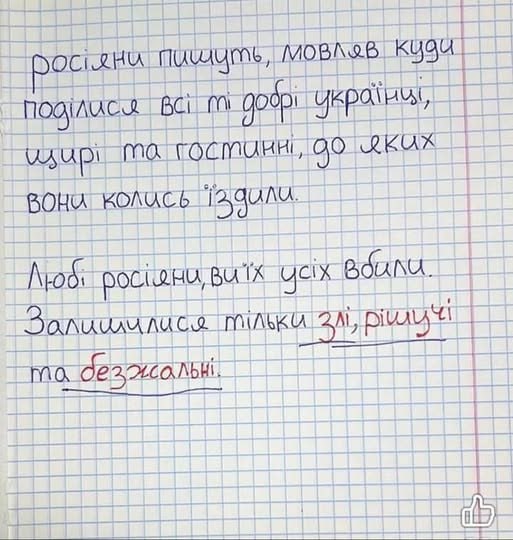 росіяни пишуть, мовляв куди
поділися всі ті добрі українці,
щирі та гостинні, до яких
вони колись їздили.
Любі росіяни, ви їх усіх вбили.
Залишилися тільки злі, рішучі
та безжальні.